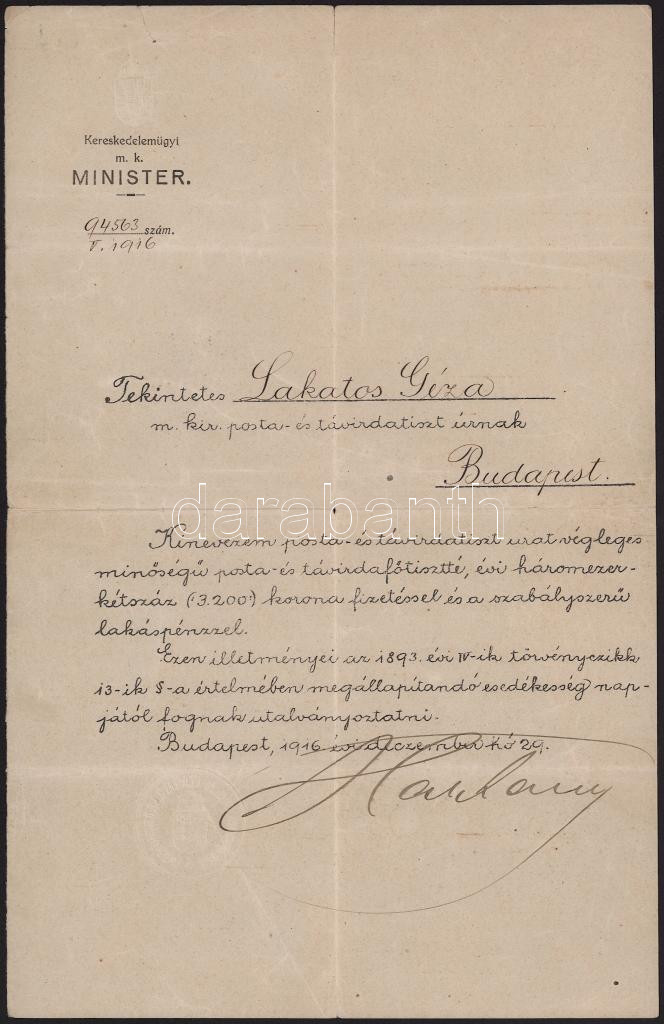 Kereskedelemügyi
m. k.
MINISTER.
94563 szám.
V. 1916
Tekintetes Lakatos Géza
m. kir. posta- és távirdatiszt úrnak
Budapest.
darabanth
Kinevezem posta- és távirdatiszt urat végleges
minőségű posta- és távirdafőtisztté, évi háromezer-
kétszáz (:3.200:) korona fizetéssel és a szabályszerű
lakáspénzzel.
Ezen illetményei az 1893. évi IV-ik törvényczikk
13-ik §-a értelmében megállapítandó esedékesség nap-
jától fognak utalványoztatni.
Budapest, 1916 évi deczember hó 29.